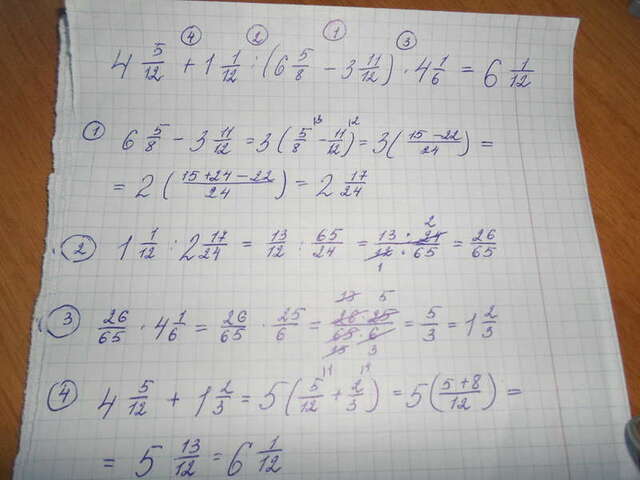 ④ ② ① ③
4 5/12 + 1 1/12 : (6 5/8 − 3 11/12) · 4 1/6 = 6 1/12
① 6 5/8 − 3 11/12 = 3 (5/8 − 11/12) = 3 ((15 − 22)/24) =
= 2 ((15 + 24 − 22)/24) = 2 17/24
② 1 1/12 : 2 17/24 = 13/12 : 65/24 = (13 · 24)/(12 · 65) = 26/65
③ 26/65 · 4 1/6 = 26/65 · 25/6 = (26 · 25)/(65 · 6) = 5/3 = 1 2/3
④ 4 5/12 + 1 2/3 = 5 (5/12 + 2/3) = 5 ((5 + 8)/12) =
= 5 13/12 = 6 1/12